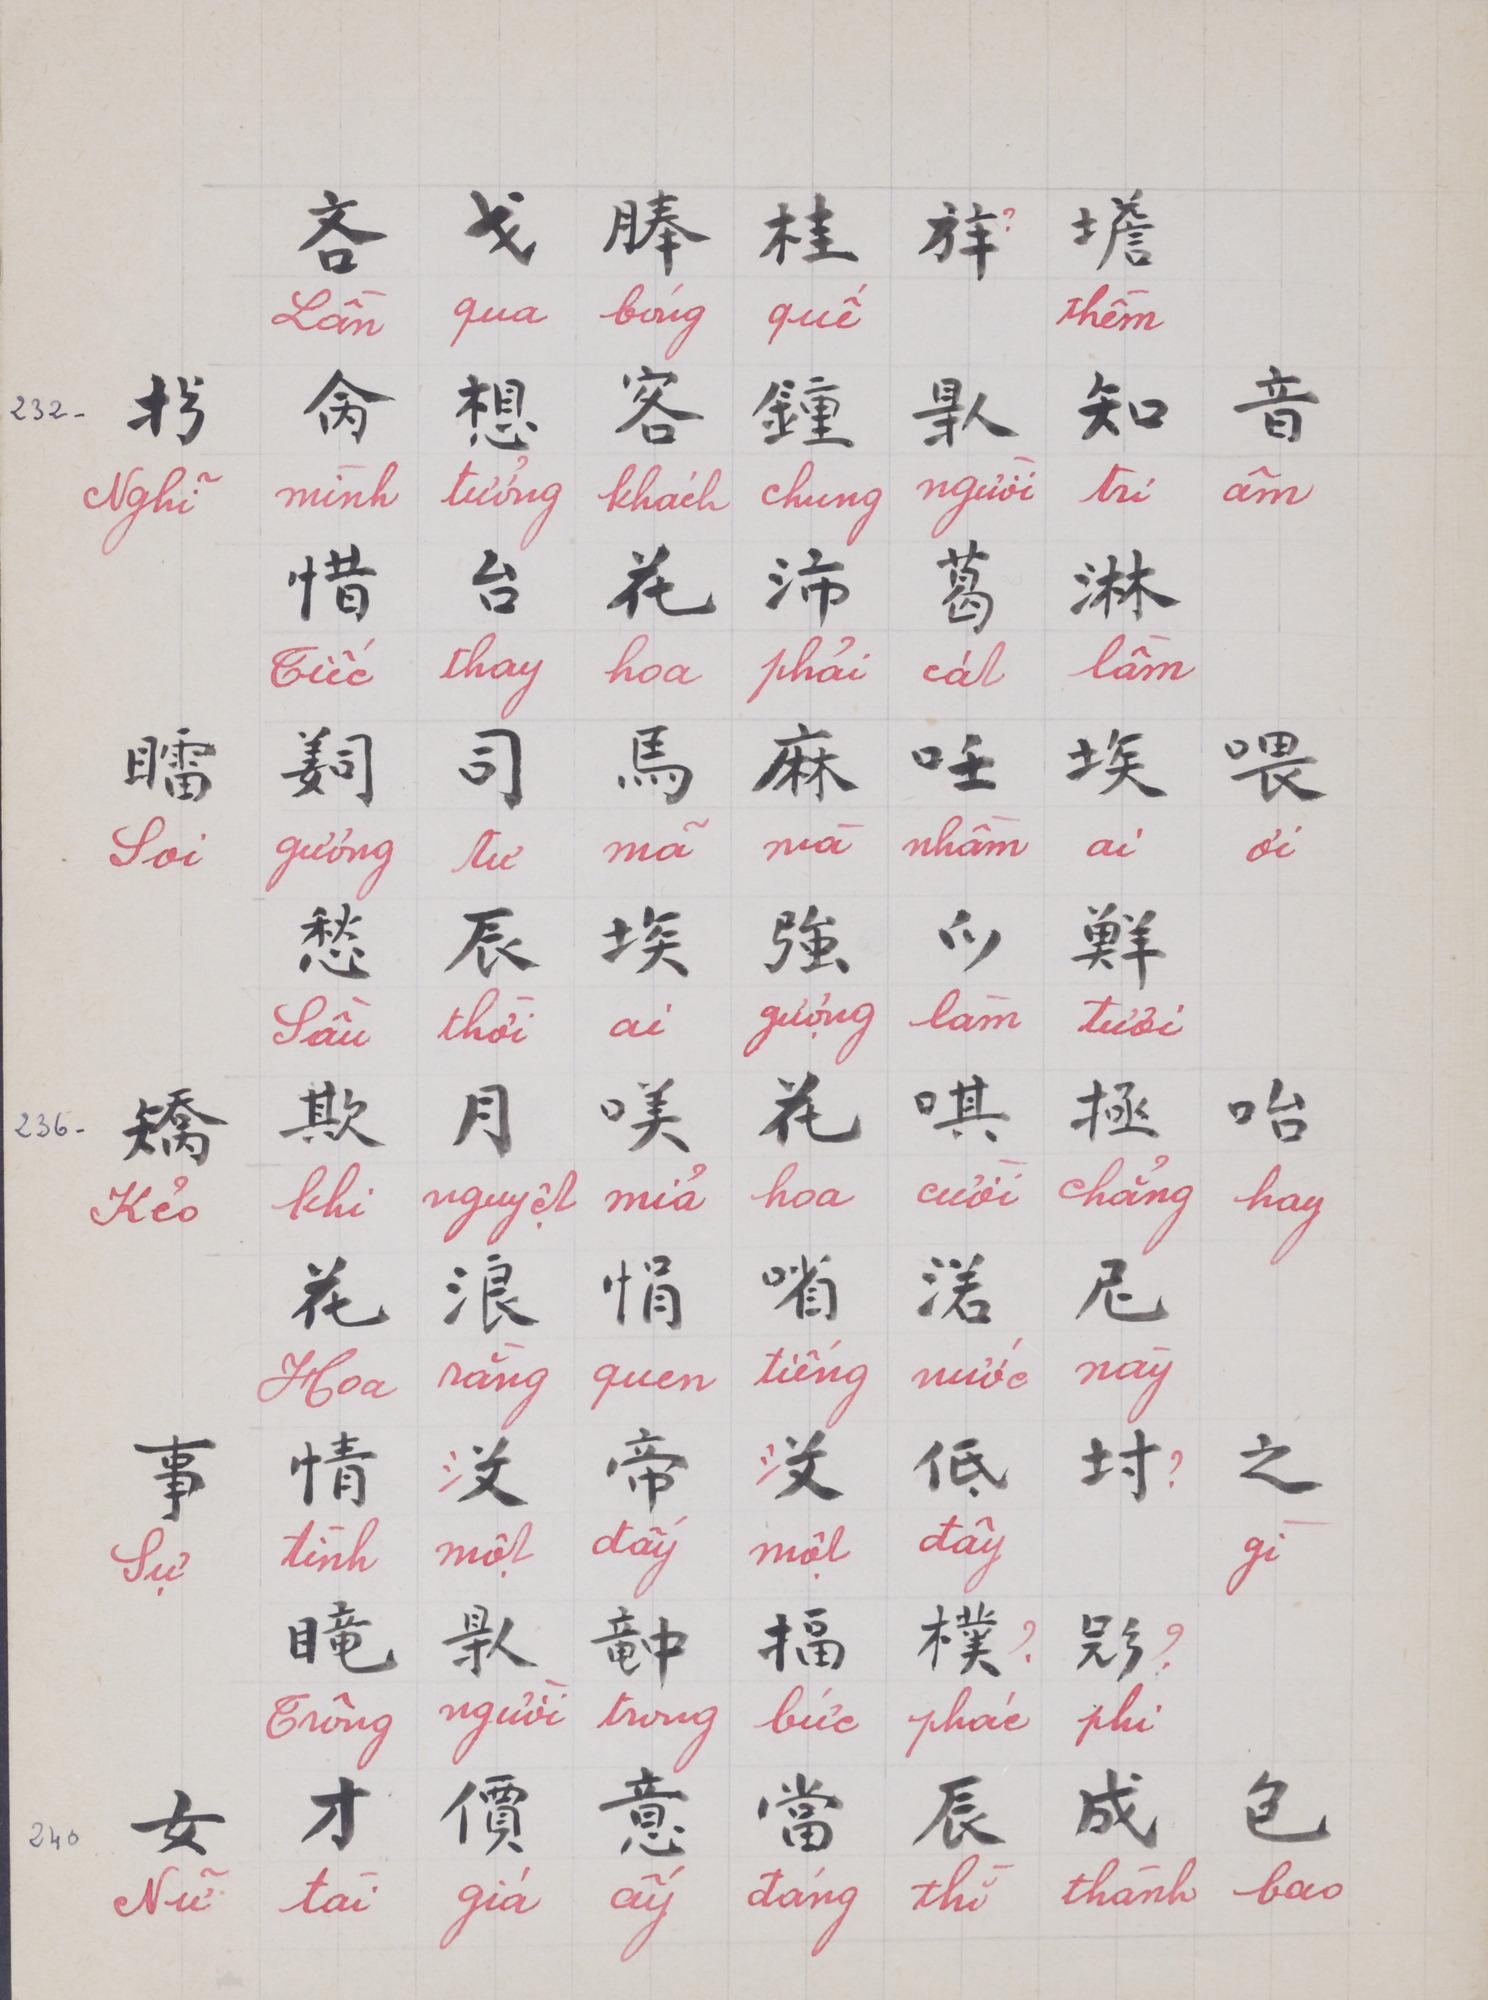 吝 戈 膵 桂 𪯭? 𡍞
Lần qua bóng quế thềm
232- 𢪮 肏 想 客 鐘 𠎬 知 音
Nghĩ mình tưởng khách chung người tri âm
惜 台 花 沛 葛 淋
Tiếc thay hoa phải cát lầm
𥋸 𦎛 司 馬 麻 呸 埃 喂
Soi gương tư mã mà nhầm ai ơi
愁 辰 埃 強 𫜵 鮮
Sầu thời ai gượng làm tươi
236- 矯 欺 月 𠸍 花 唭 拯 咍
Kẻo khi nguyệt mỉa hoa cười chẳng hay
花 浪 悁 㗂 渃 尼
Hoa rằng quen tiếng nước này
事 情 𣳔 帝 𣳔 低 㘷? 之
Sự tình một đấy một đây gì
𥊣 𠎬 𥪝 揊 樸? 𢒎?
Trông người trong bức phác phi
240 女 才 價 意 當 辰 成 包
Nữ tài giá ấy đáng thì thành bao